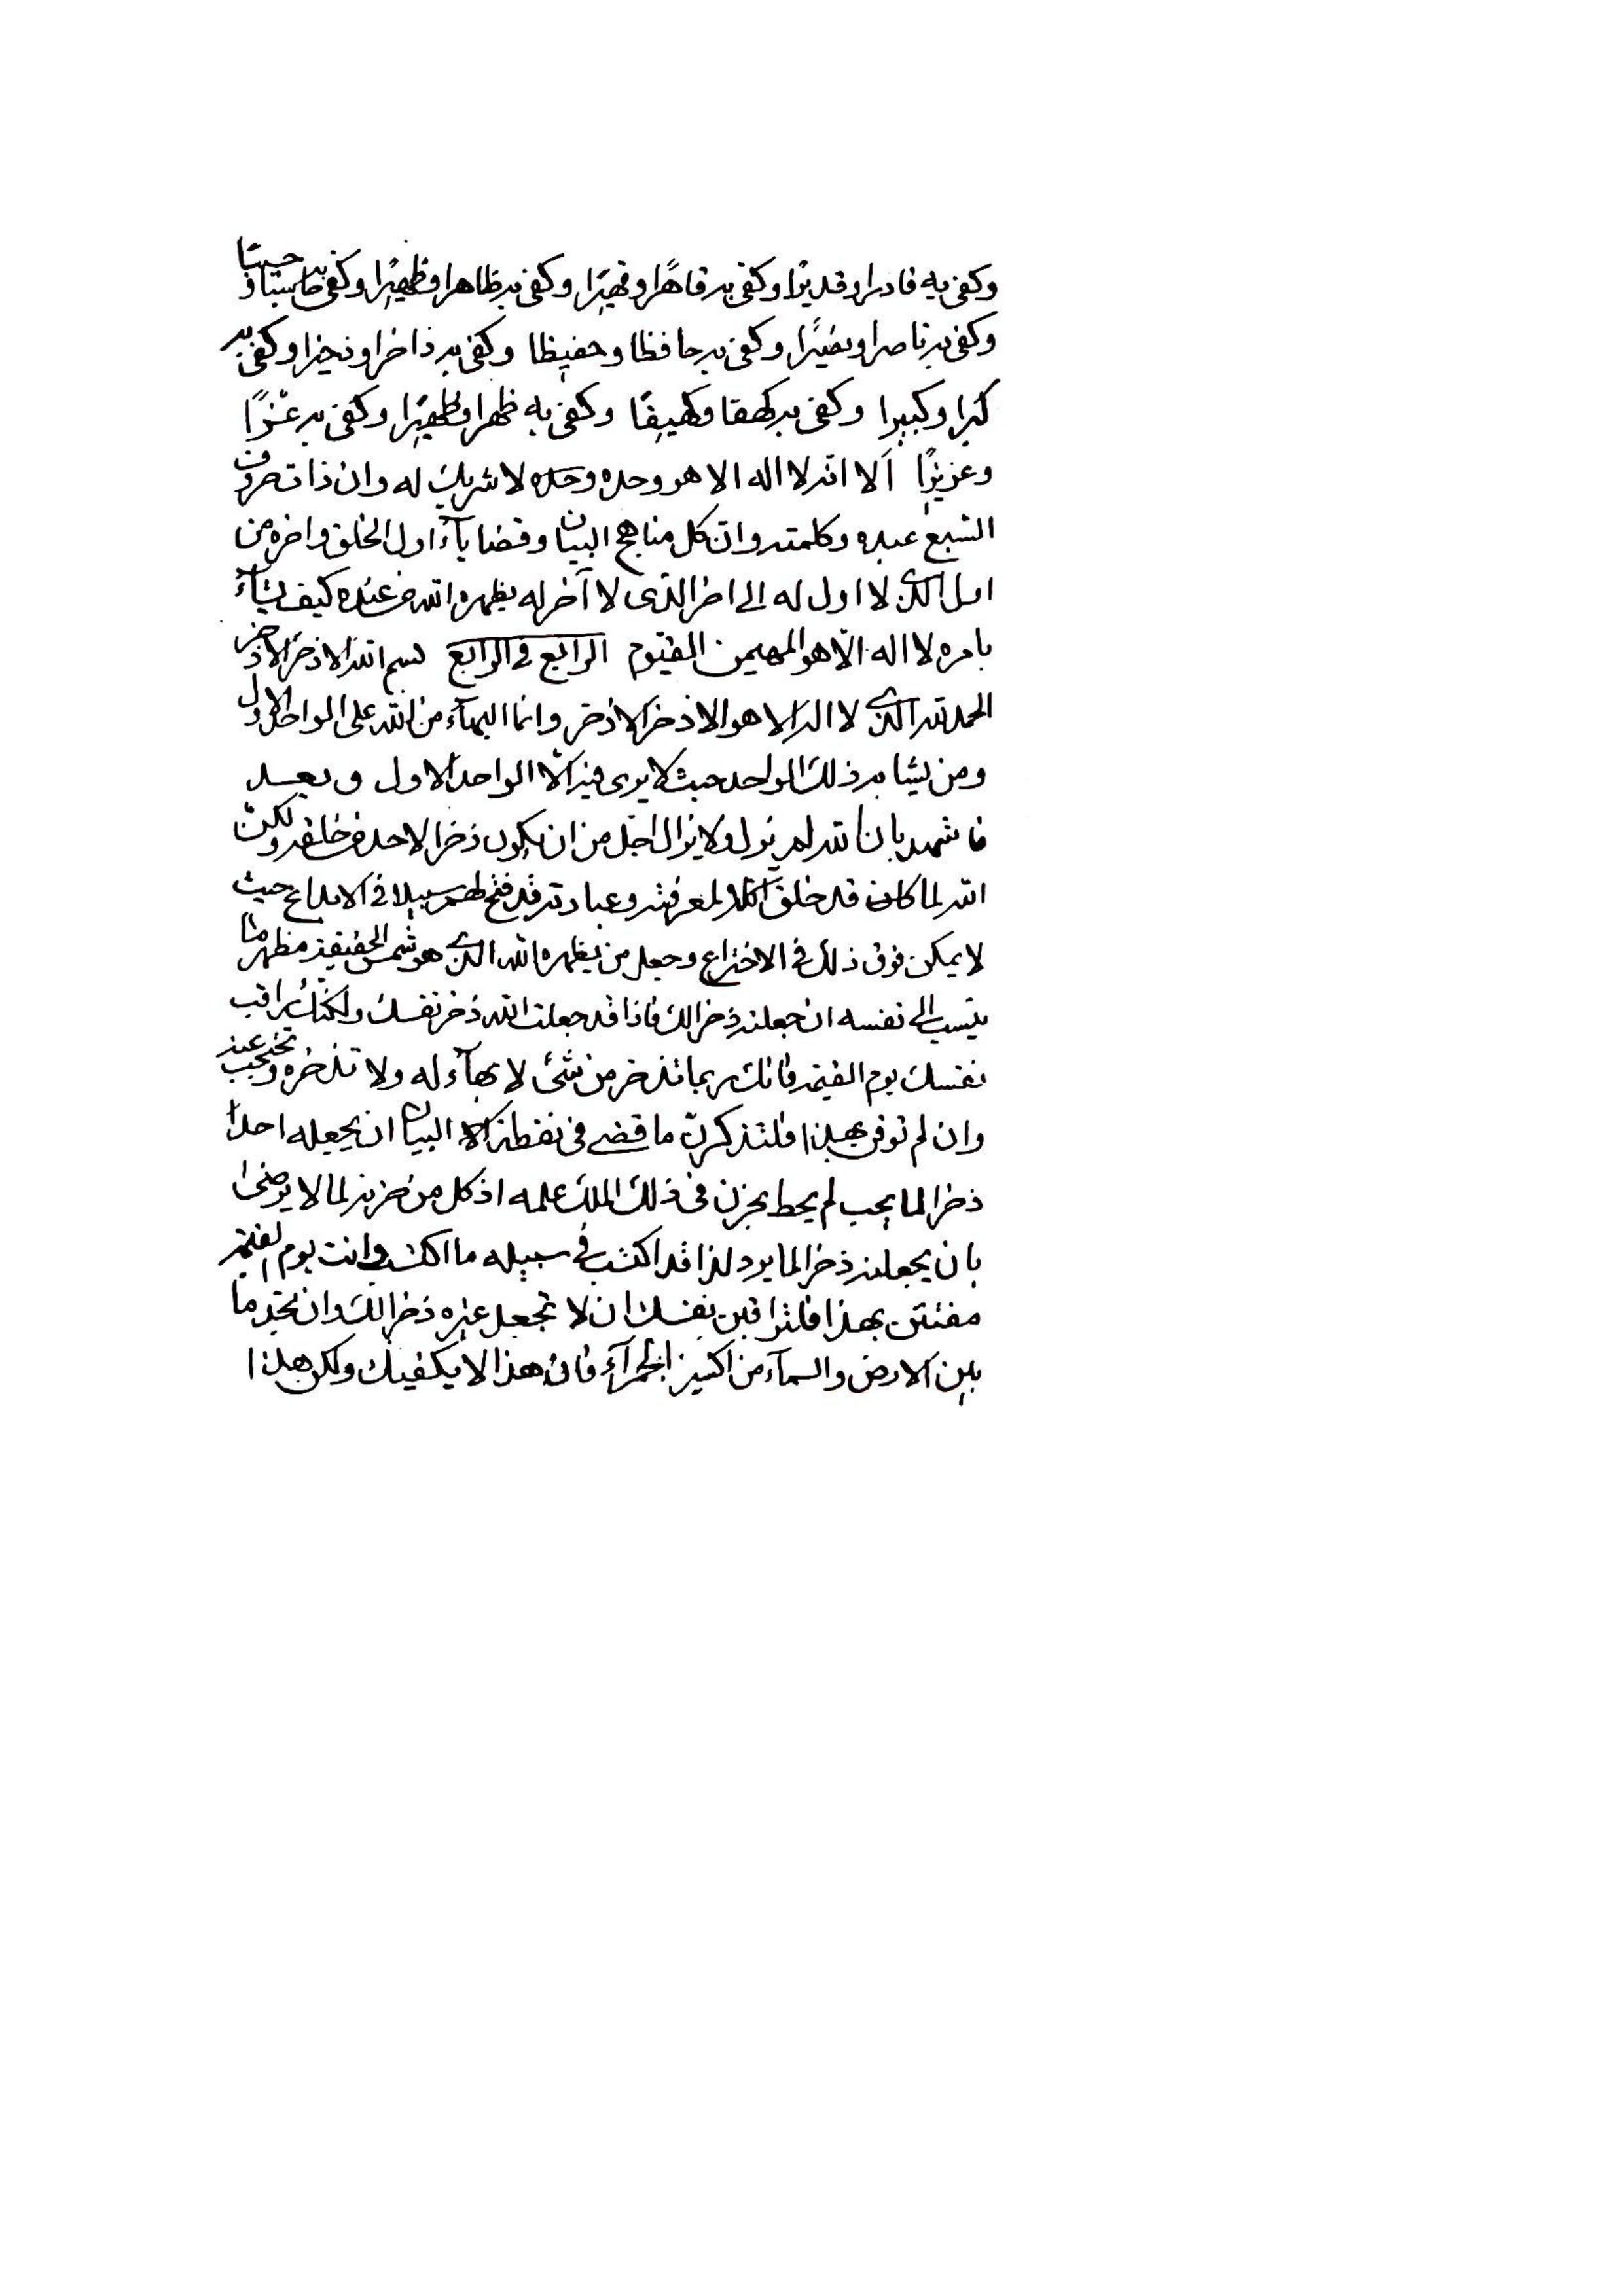 وكفى به قادرا وقديرا وكفى به قاهرا وقهيرا وكفى به ظاهرا وظهيرا وكفى به حاسبا و حسيبا
وكفى به ناصرا ونصيرا وكفى به حافظا وحفيظا وكفى به ذاخرا وذخيرا وكفى به
كبرا وكبيرا وكفى به كهفا وكهيفا وكفى به ظهرا وظهيرا وكفى به عززا
وعزيزا الا انه لا اله الا هو وحده وحده لا شريك له وان ذات حروف
السبع عبده وكلمته وان كل مناهج البيان وقضايآء اول الخلق واخره من
اول الذى لا اول له الى اخر الذى لا آخر له يظهره الله من عنده كيف يشآء
بامره لا اله الّا هو المهيمن القيّوم الرابع فى الرابع بسم الله الاذخر الاذخر
الحمد لله الذى لا اله الا هو الاذخر الاذخر وانما البهآء من الله على الواحد الاول
ومن يشابه ذلك الواحد حيث لا يرى فيه الّا الواحد الاول وبعد
فاشهد بان الله لم يزل ولا يزال اجّل من ان يكون ذخرا لاحد من خلقه ولكن
الله لما كان قد خلق الكل لمعرفته وعبادته قد فتح لهم سبيلا فى الابداع حيث
لا يمكن فوق ذلك فى الاختراع وجعل من يظهره الله الذى هو شمس الحقيقة مظهر ما
ينسب الى نفسه ان جعلته ذخرا لك فاذا قد جعلت الله ذخر نفسك ولكنك راقب
نفسك يوم القيمة فانك ربما تذخر من شئ لا بهآء له ولا تذخره وتحتجب عنه
وان لم توقن بهذا فلتذكرن ما قضى فى نقطة البيان ان يجعله احدا
ذخرا لما يحب لم يحط بحزن فى ذلك الملك علمه اذ كل من حزنه لما لا يرضى
بان يجعلنه ذخرا لما يرد لذا قد اكتسب فى سبيله ما اكتسب وانت يوم القيمة
مفتتن بهذا فلتراقبن نفسك ان لا تجعل غيره ذخرا لك وان تجد ما
بين الارض والسمآء من اكسير الحمرآء فان هذا لا يكفينك ولكن هذا